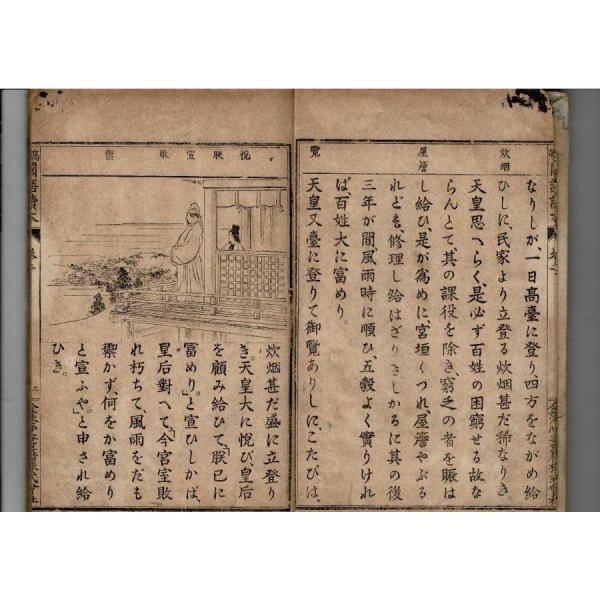 炊烟
屋簷
覽
なりしが、一日高臺に登り、四方をながめ給
ひしに、民家より立登る炊烟甚だ稀なりき。
天皇思へらく、是必ず百姓の困窮せる故な
らんとて、其の課役を除き、窮乏の者を賑は
し給ひ、是が爲めに、宮垣くづれ、屋簷やぶる
れども、修理し給はざりき。しかるに其の後
三年が間、風雨時に順ひ、五穀よく實りけれ
ば、百姓大に富めり。
天皇又臺に登りて御覽ありしに、こたびは、
悅
朕
宣
敗
禦
炊烟甚だ盛に立登り
き。天皇大に悅び、皇后
を顧み給ひて、「朕已に
富めり。」と宣ひしかば、
皇后對へて、「今宮室敗
れ朽ちて、風雨をだも
禦かず、何をか富めり
と宣ふや。」と申され給
ひき。
國語讀本